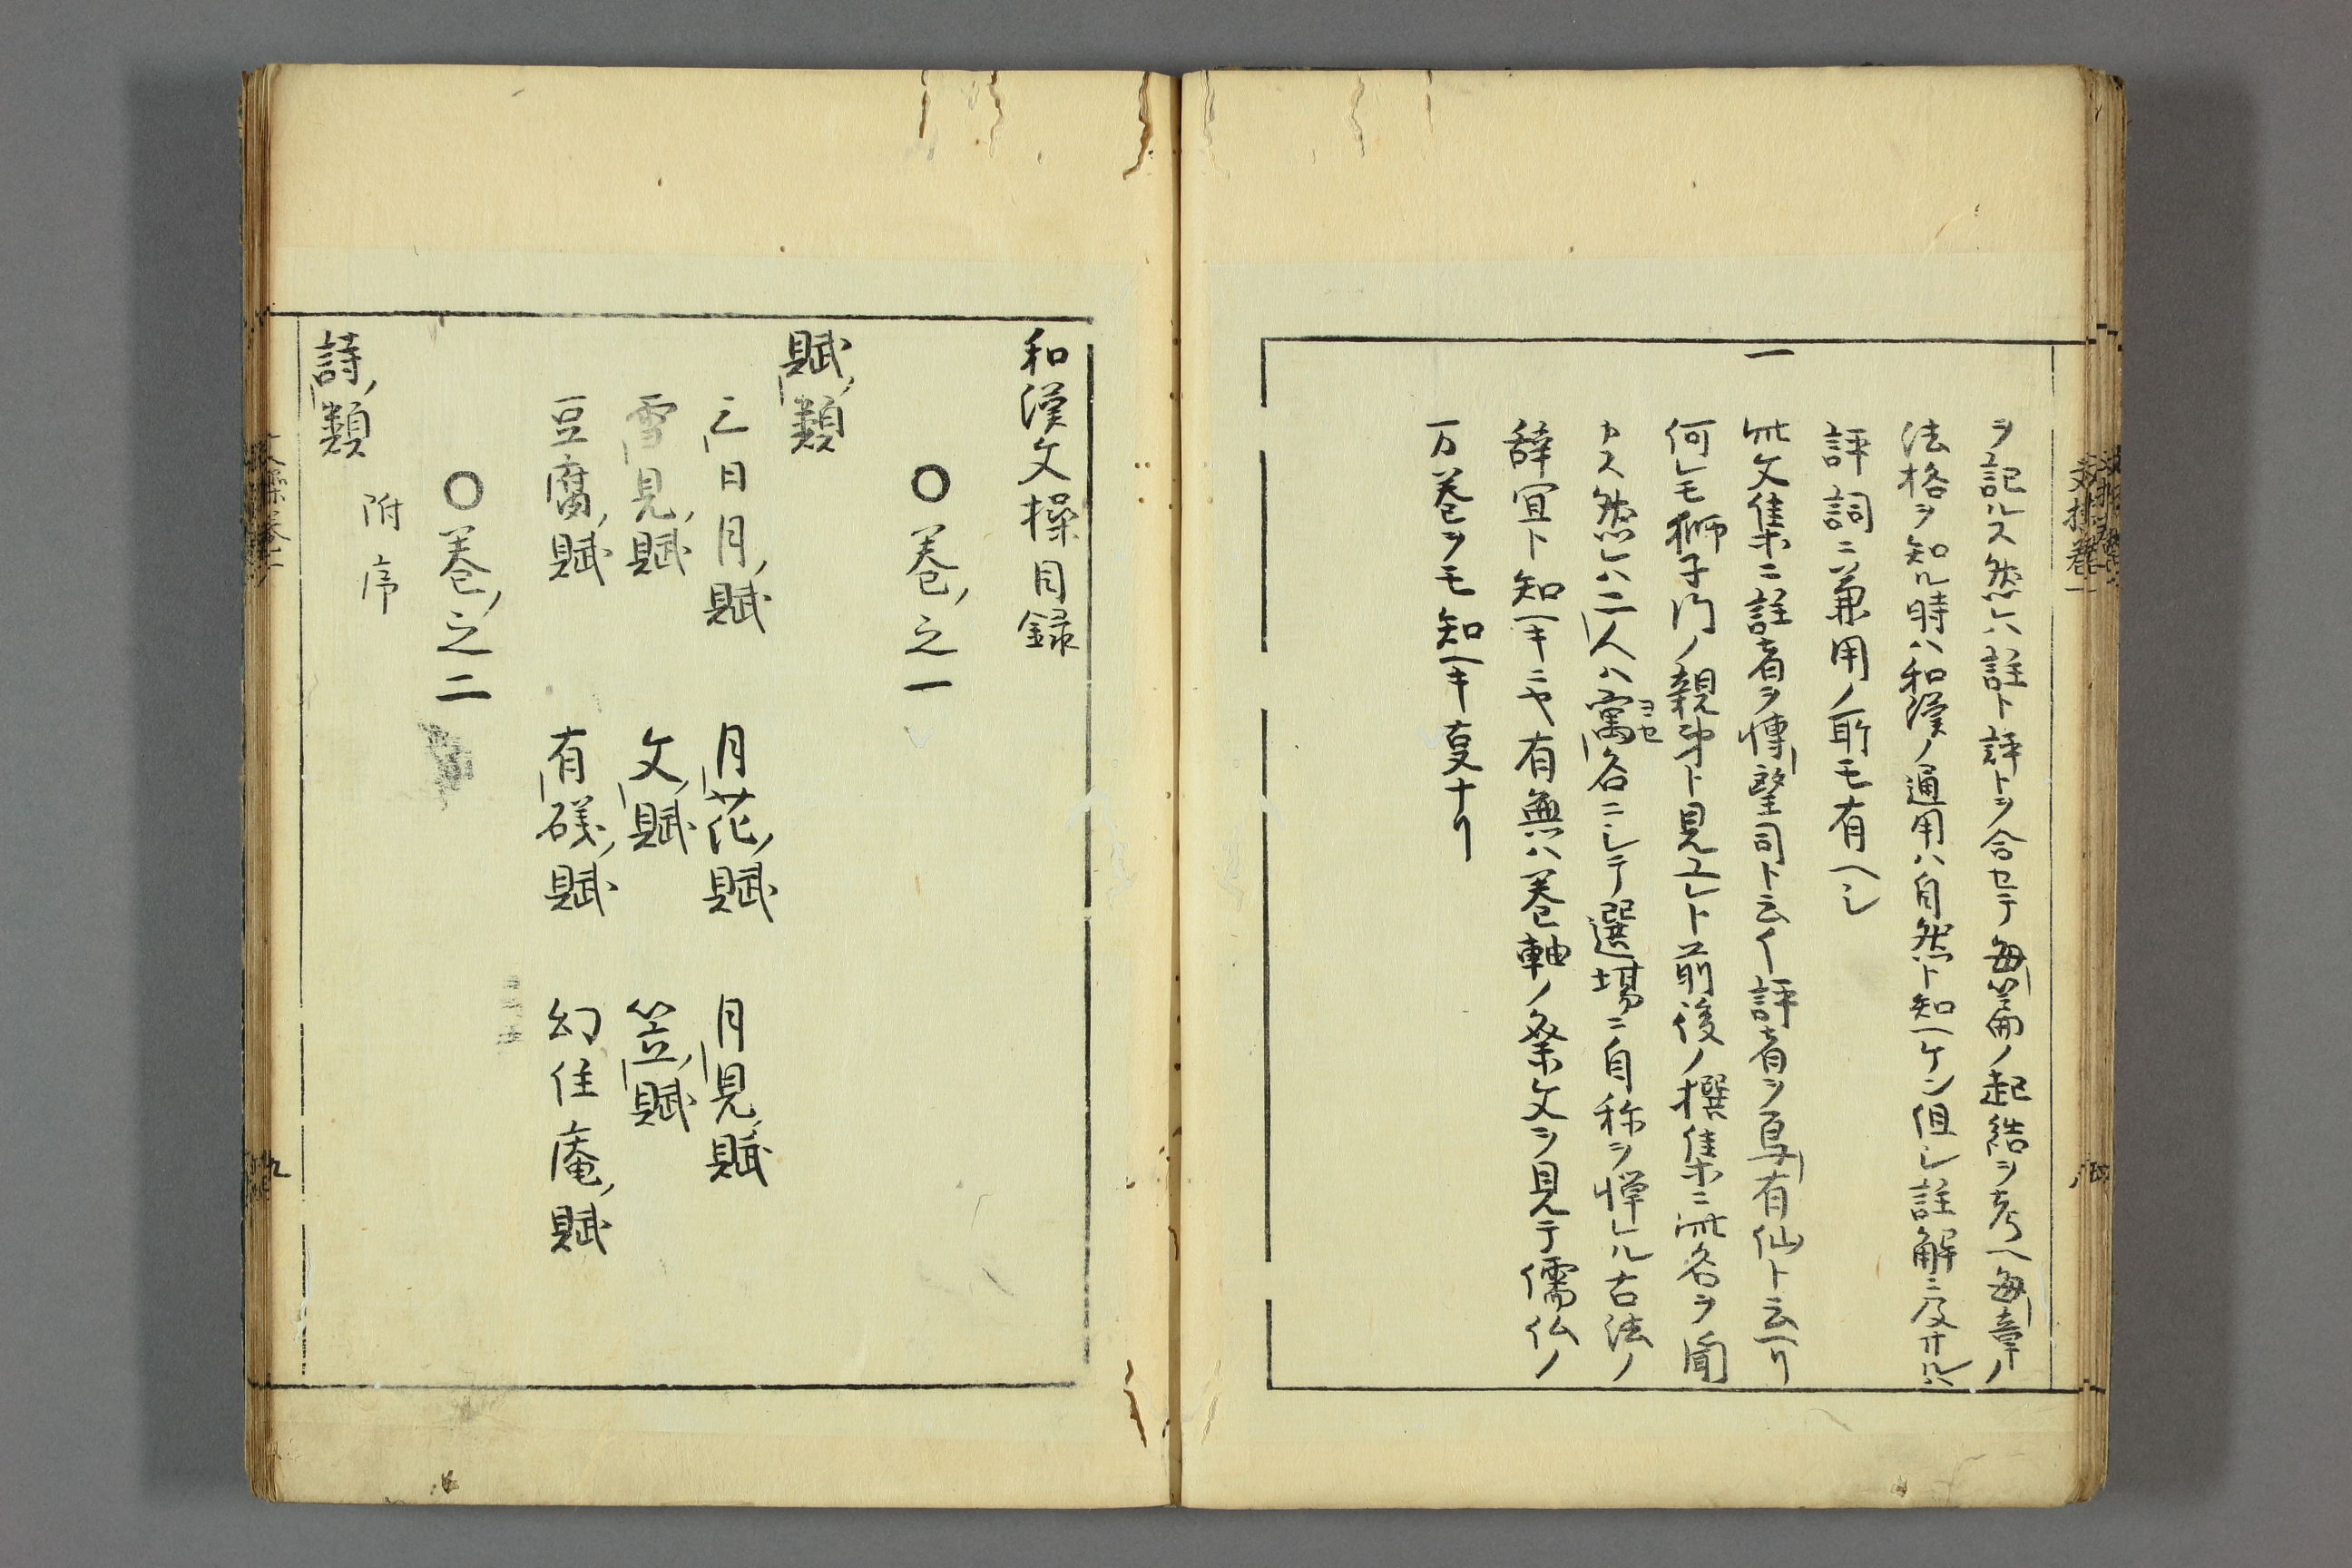 ヲ記ルス然レハ註ト評トヲ合セテ毎篇ノ起結ヲ考ヘ毎章ノ
法格ヲ知ル時ハ和漢ノ通用ハ自然ト知ヘケン但シ註解ニ及サルハ
評詞ニ兼用ノ所モ有ヘシ
一
此文集ニ註者ヲ博望司ト云イ評者ヲ烏有仙ト云ヘリ
何レモ獅子門ノ親弟ト見エレト前後ノ撰集ニ此名ヲ聞
カス然レハ二人ハ寓名ニシテ選場ニ自称ヲ憚レル古法ノ
ヨセ
辞宜ト知ヘキニヤ有無ハ巻軸ノ祭文ヲ見テ儒仏ノ
万巻ヲモ知ヘキ叓ナリ
和漢文操目録
○巻之一
賦類
三日月賦 月花賦 月見賦
雪見賦 文賦 笠賦
豆腐賦 有磯賦 幻住庵賦
○巻之二
附序
詩類
九